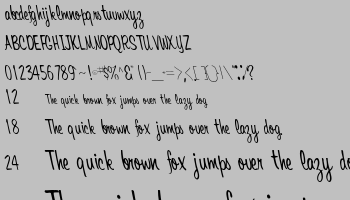 abcdefghijklmnopqrstuvwxyz
ABCDEFGHIJKLMNOPQRSTUVWXYZ
0123456789
12 The quick brown fox jumps over the lazy dog
18 The quick brown fox jumps over the lazy dog.
24 The quick brown fox jumps over the lazy do